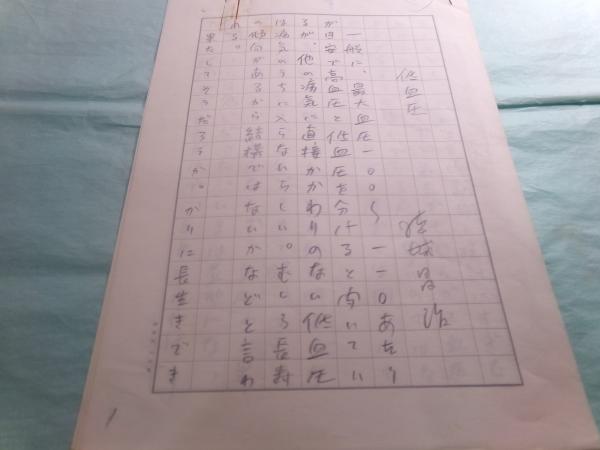 低血圧
結城昌治
一般に、最大血圧一〇〇〜一一〇あたり
が目安で高血圧と低血圧を分けると聞いてい
るが、他の病気に直接かかわりのない低血圧
は病気のうちに入らないらしい。むしろ長寿
の傾向があるから結構ではないかなどと言わ
れる。
果たしてそうだろうか。かりに長生きでき
1